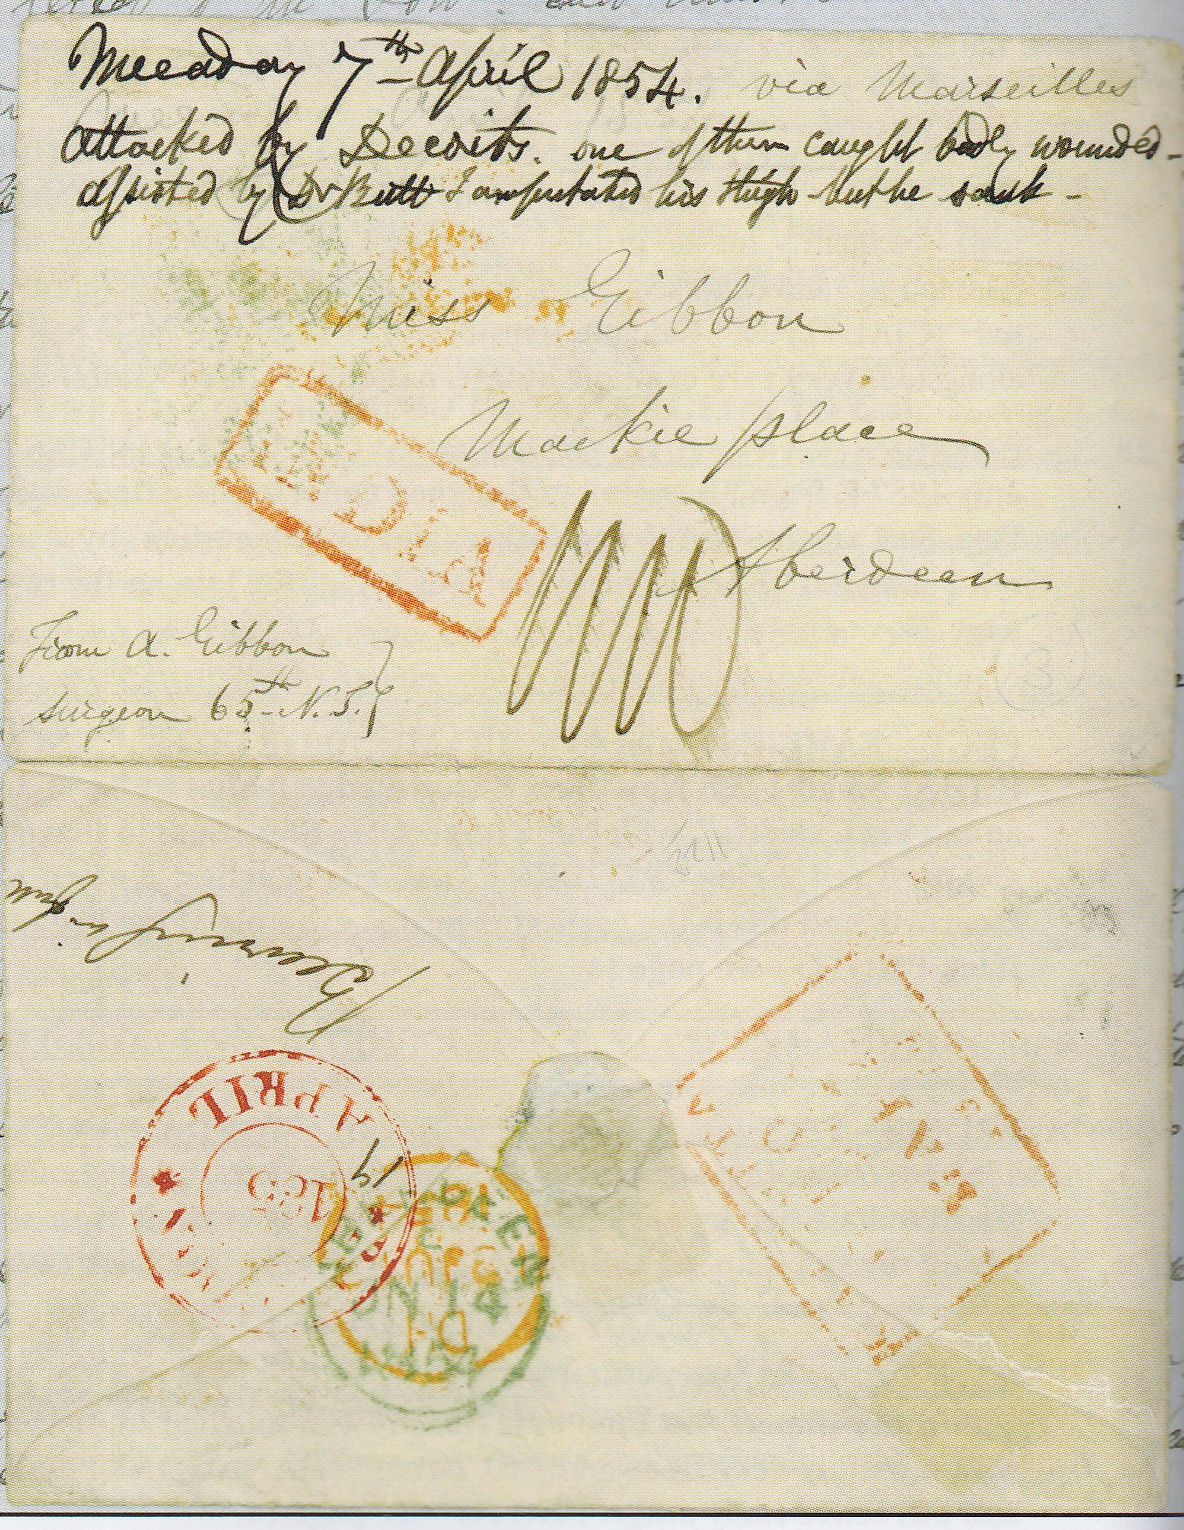 Meeaday 7th April 1854. via Marseilles
attacked by Decoits. one of them caught badly wounded -
assisted by Dr Butt I amputated his thigh but he sank -
Miss Gibbon
Mackie place
INDIA
Aberdeen
From A. Gibbon
surgeon 65th N.I.
3
Bearing
APRIL
19
185
ABERDEEN
JN 14
1854